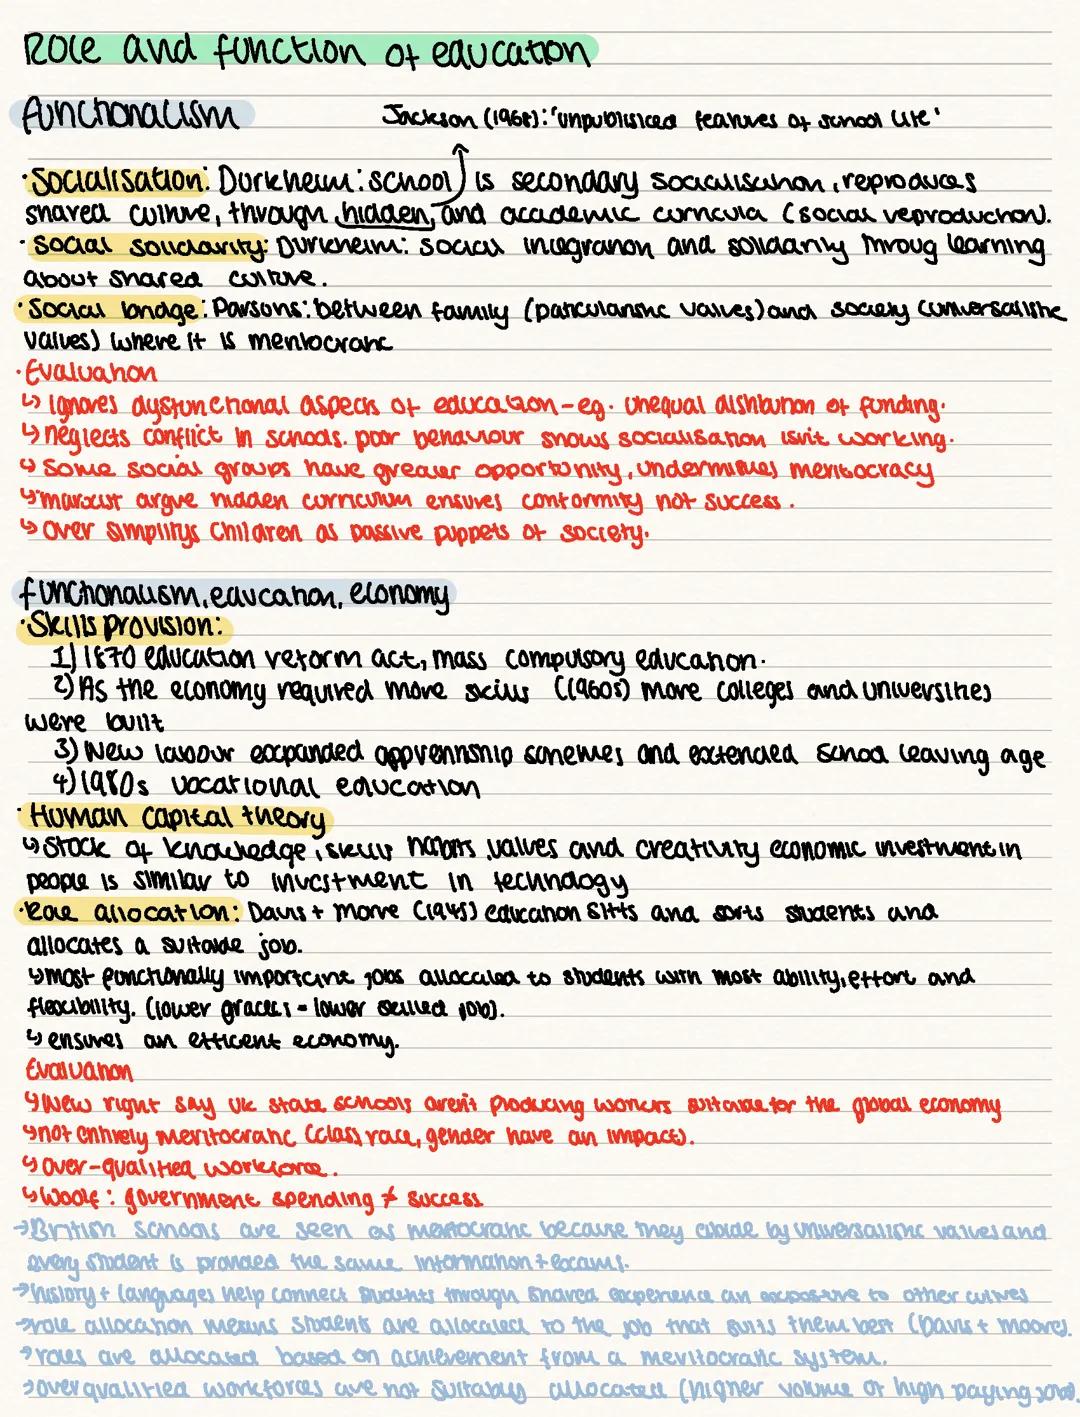 Role and function of education
Functionalism
Jackson (1968): 'unpublisiced features of school life'
·Socialisation: Durkheim: school is secondary socialisation, reproduces
shared culture, through hidden, and academic curricula (social reproduction).
·Social solidarity: Durkheim: social integration and solidarity throug learning
about shared culture.
·Social bridge: Parsons: between family (particularistic values) and society (universalistic
values) where it is meritocratic
·Evaluation
↳ ignores dysfunctional aspects of education - eg. unequal distribution of funding.
↳ neglects conflict in schools. poor behaviour shows socialisation isn't working.
↳ Some social groups have greater opportunity, undermines meritocracy
↳ marxist argue hidden curriculum ensures conformity not success.
↳ Over simplifys children as passive puppets of society.
functionalism, education, economy
·Skills provision:
1) 1870 education reform act, mass compulsory education.
2) As the economy required more skills (1960s) more colleges and universities
were built
3) New labour expanded apprentiship schemes and extended school leaving age
4) 1980s vocational education
·Human capital theory
↳ Stock of knowledge, skills habits, values and creativity economic investment in
people is similar to investment in technology
·Role allocation: Davis + Moore (1945) education sifts and sorts students and
allocates a suitable job.
↳ most functionally important jobs allocated to students with most ability, effort and
flexibility. (lower grades = lower skilled job).
↳ ensures an efficent economy.
Evaluation
↳ New right say UK state schools aren't producing workers suitable for the global economy
↳ not entirely meritocratic (class, race, gender have an impact).
↳ Over-qualified workforce.
↳ Woolf: government spending ≠ success
→ British schools are seen as meritocratic because they abide by universalistic values and
every student is provided the same information + exams.
→ history + languages help connect students through shared experience an exposure to other cultures
→ role allocation means students are allocated to the job that suits them best (Davis + moore).
→ roles are allocated based on achievement from a meritocratic system.
→ over qualified workforces are not suitably allocated (higher volume of high paying jobs).